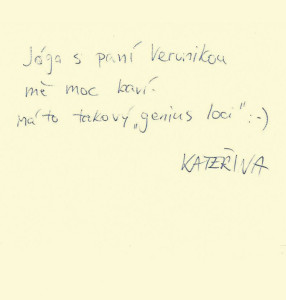 Jóga s paní Veronikou
mě moc baví.
Má to takový „genius loci" :-)
KATEŘINA